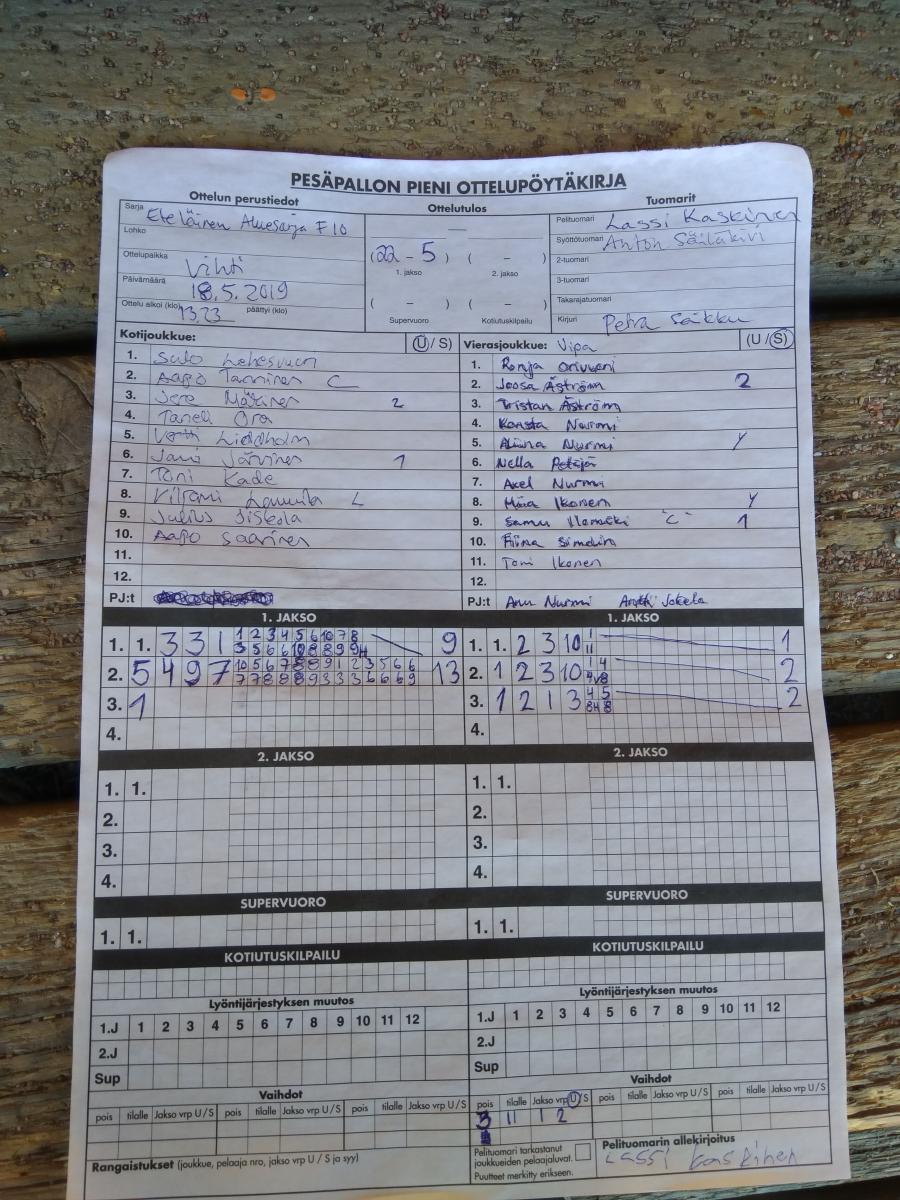 PESÄPALLON PIENI OTTELUPÖYTÄKIRJA
Ottelun perustiedot
Ottelutulos
Tuomarit
Sarja Eteläinen Aluesarja F10
Lohko
Ottelupaikka Vihti
Päivämäärä 18.5.2019
Ottelu alkoi (klo) 13.23 päättyi (klo)
(22 - 5) ( - )
1. jakso 2. jakso
( - ) ( - )
Supervuoro Kotiutuskilpailu
Pelituomari Lassi Kaskinen
Syöttötuomari Anton Säiläkivi
2-tuomari
3-tuomari
Takarajatuomari
Kirjuri Petra Säkku
Kotijoukkue: (U/S)
1. Sulo
2. Aapo Tanninen C
3. Jere 2
4. Taneli Ora
5. Liedholm
6. Jani Järvinen 1
7. Toni Kade
8. L
9. Julius Siskola
10. Aapo Saarinen
11.
12.
PJ:t
Vierasjoukkue: Vipa (U/S)
1. Ronja
2. Joosa Åström 2
3. Tristan Åström
4. Konsta Nurmi
5. Nurmi Y
6. Nella Petäjä
7. Axel Nurmi
8. Ikonen Y
9. Samu "C" 1
10. Fiina Simelin
11. Toni Ikonen
12.
PJ:t Anu Nurmi Antti Jokela
1. JAKSO
1. 1. 3 3 1 1 2 3 4 5 6 10 7 8 9
2. 5 4 9 7 13
3. 1
4.
1. JAKSO
1. 1. 2 3 10 1 11 1
2. 1 2 3 10 1 4 2
3. 1 2 1 3 4 5 2
4.
2. JAKSO
1. 1.
2.
3.
4.
2. JAKSO
1. 1.
2.
3.
4.
SUPERVUORO
1. 1.
SUPERVUORO
1. 1.
KOTIUTUSKILPAILU
KOTIUTUSKILPAILU
Lyöntijärjestyksen muutos
1.J 1 2 3 4 5 6 7 8 9 10 11 12
2.J
Sup
Lyöntijärjestyksen muutos
1.J 1 2 3 4 5 6 7 8 9 10 11 12
2.J
Sup
Vaihdot
pois tilalle Jakso vrp U/S pois tilalle Jakso vrp U/S pois tilalle Jakso vrp U/S
Vaihdot
pois tilalle Jakso vrp U/S pois tilalle Jakso vrp U/S pois tilalle Jakso vrp U/S
3 11 1 2
Rangaistukset (joukkue, pelaaja nro, jakso vrp U/S ja syy)
Pelituomari tarkastanut
joukkueiden pelaajaluvat.
Puutteet merkitty erikseen.
Pelituomarin allekirjoitus
Lassi Kaskinen